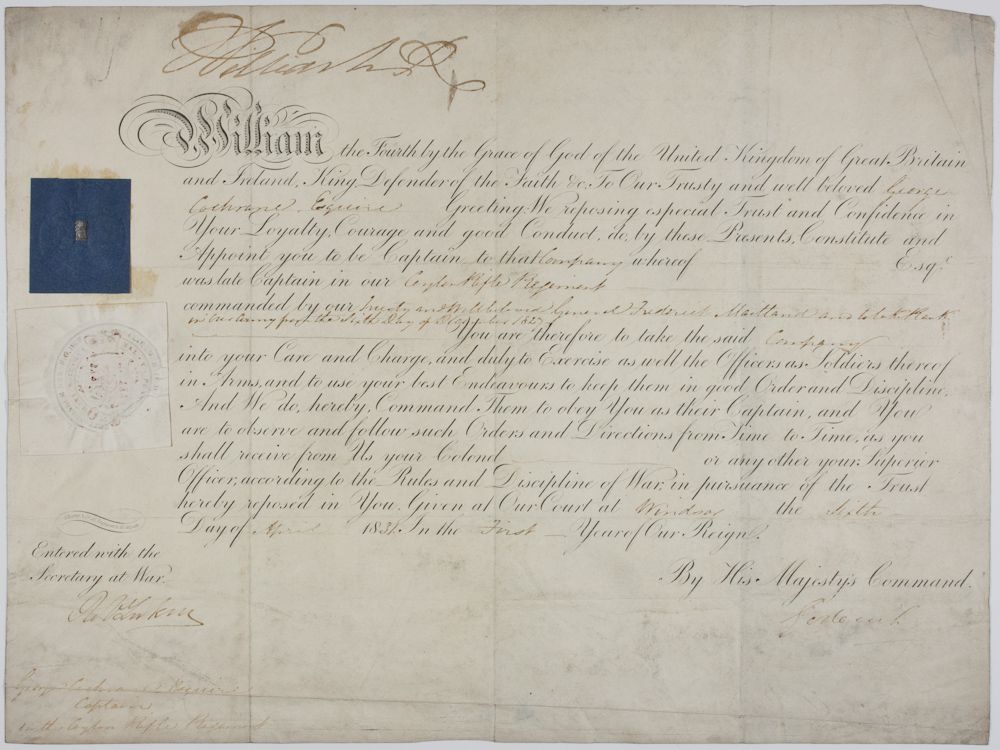 William R
William the Fourth by the Grace of God of the United Kingdom of Great Britain
and Ireland, King, Defender of the Faith &c. To Our Trusty and well beloved George
Cochrane Esquire Greeting: We reposing especial Trust and Confidence in
Your Loyalty, Courage and good Conduct, do, by these Presents, Constitute and
Appoint you to be Captain to that Company whereof Esqr.
was late Captain in our Ceylon Rifle Regiment
commanded by our trusty and Wellbeloved General Frederick Maitland and to take Rank
in Our Army from the Sixth Day of
You are therefore to take the said Company
into your Care and Charge, and duly to Exercise as well the Officers as Soldiers thereof
in Arms, and to use your best Endeavours to keep them in good Order and Discipline,
And We do, hereby, Command Them to obey You as their Captain, and You
are to observe and follow such Orders and Directions from Time to Time, as you
shall receive from Us your Colonel or any other your Superior
Officer, according to the Rules and Discipline of War, in pursuance of the Trust
hereby reposed in You. Given at Our Court at Windsor the Sixth
Day of April 1831 In the First Year of Our Reign.
Entered with the
Secretary at War.
By His Majesty's Command.
Goderich
George Cochrane Esquire
Captain
in the Ceylon Rifle Regiment